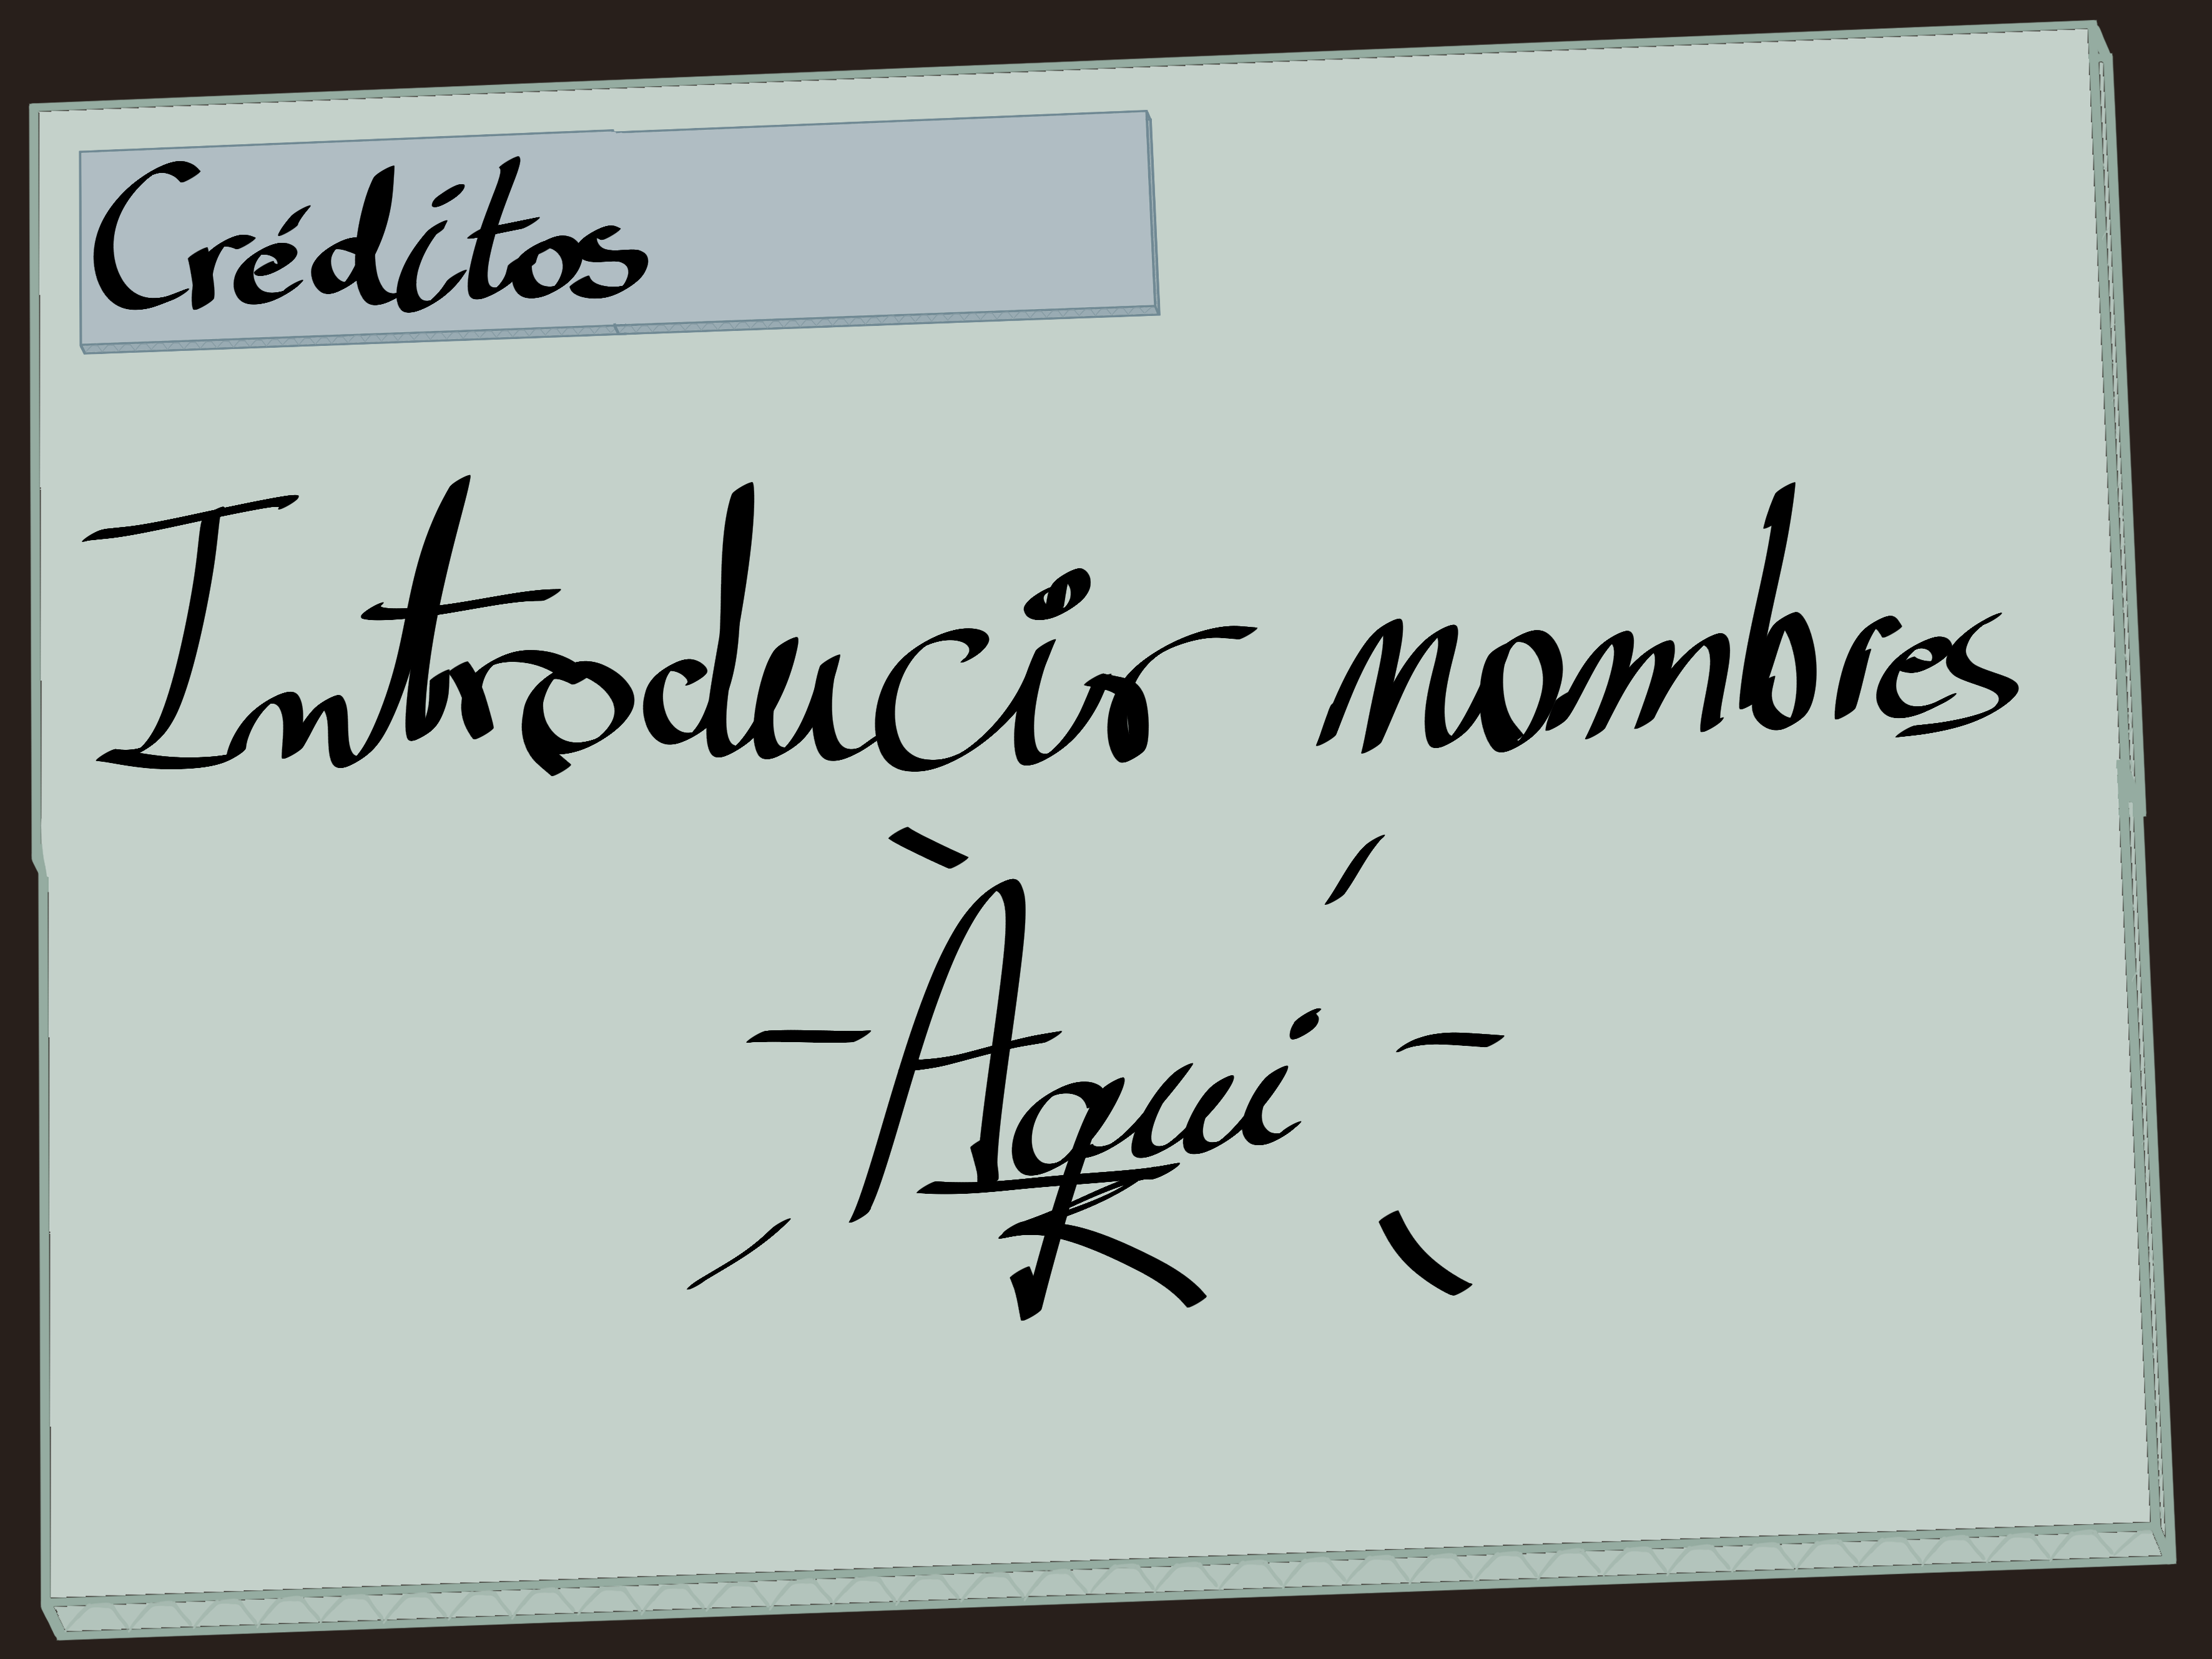 Créditos
Introducir nombres
Aqui